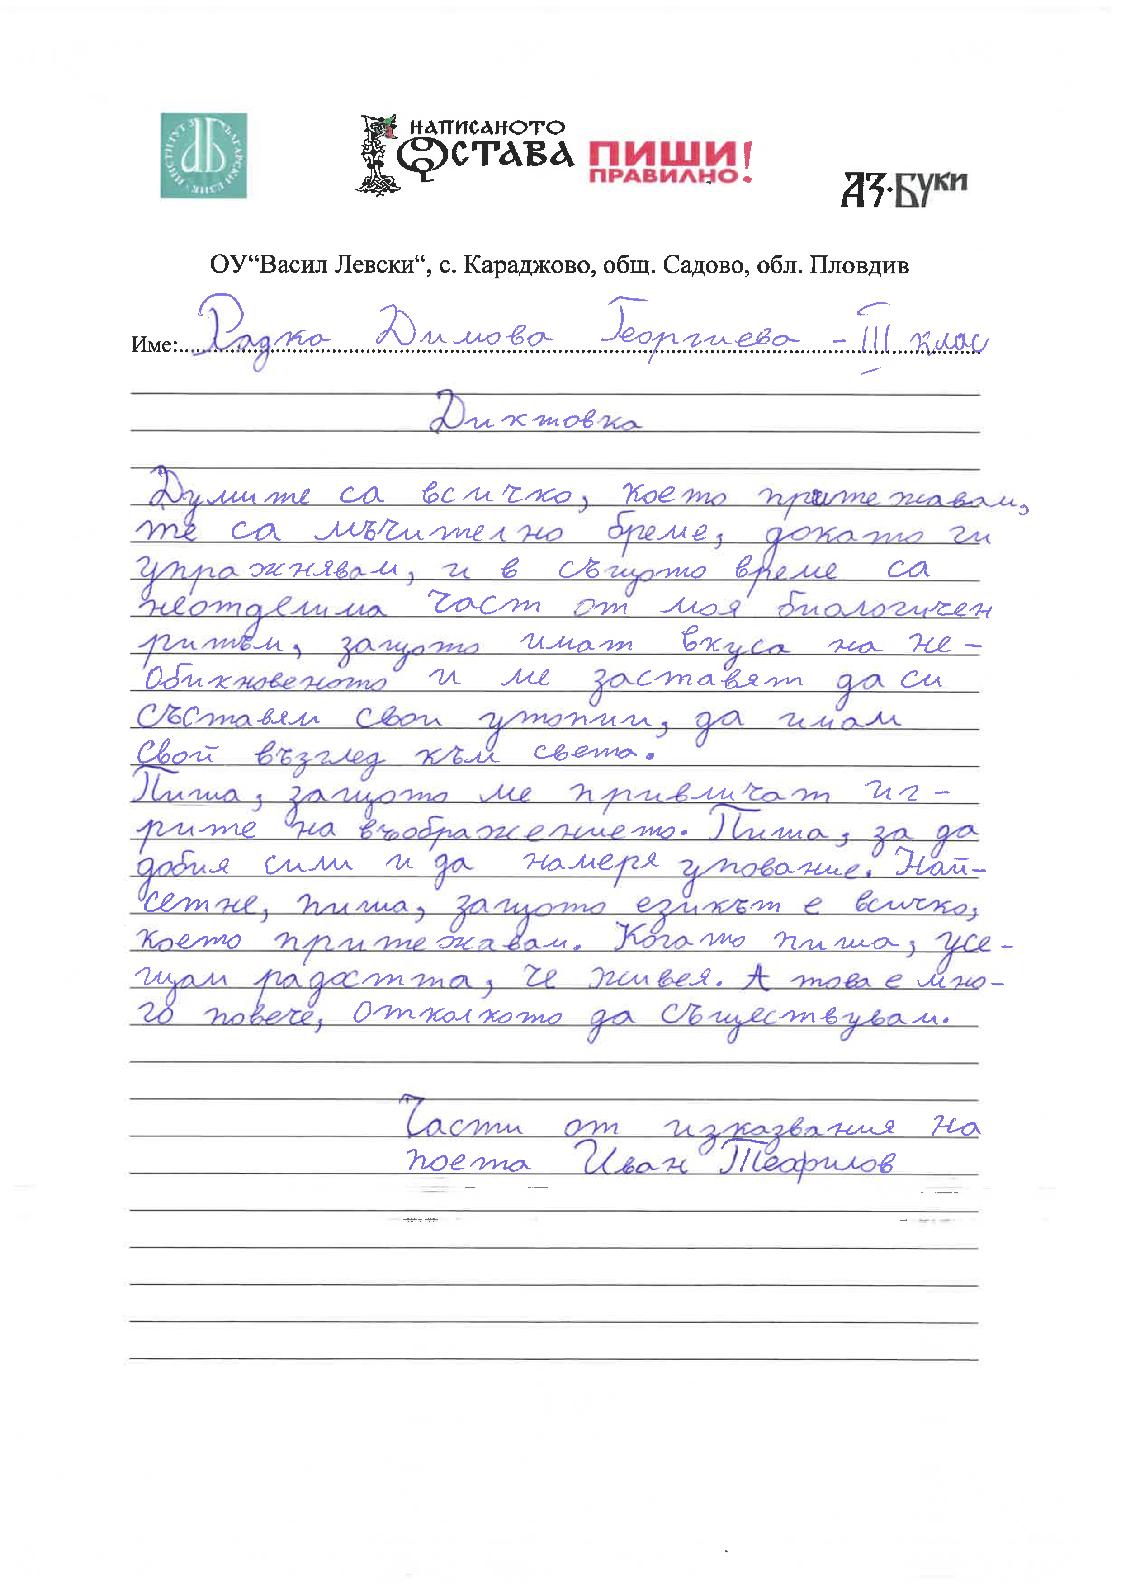 ИНСТИТУТ ЗА БЪЛГАРСКИ ЕЗИК
НАПИСАНОТО
ОСТАВА ПИШИ!
ПРАВИЛНО!
АЗ·БУКИ
ОУ“Васил Левски“, с. Караджово, общ. Садово, обл. Пловдив
Име: Радка Димова Георгиева - III клас
Диктовка
Думите са всичко, което притежавам,
те са мъчително бреме, докато ги
упражнявам, и в същото време са
неотделима част от моя биологичен
ритъм, защото имат вкуса на не-
обикновеното и ме заставят да си
съставям свои утопии, да имам
свой възглед към света.
Пиша, защото ме привличат иг-
рите на въображението. Пиша, за да
добия сили и да намеря упование. Най-
сетне, пиша, защото езикът е всичко,
което притежавам. Когато пиша, усе-
щам радостта, че живея. А това е мно-
го повече, отколкото да съществувам.
Части от изказвания на
поета Иван Теофилов